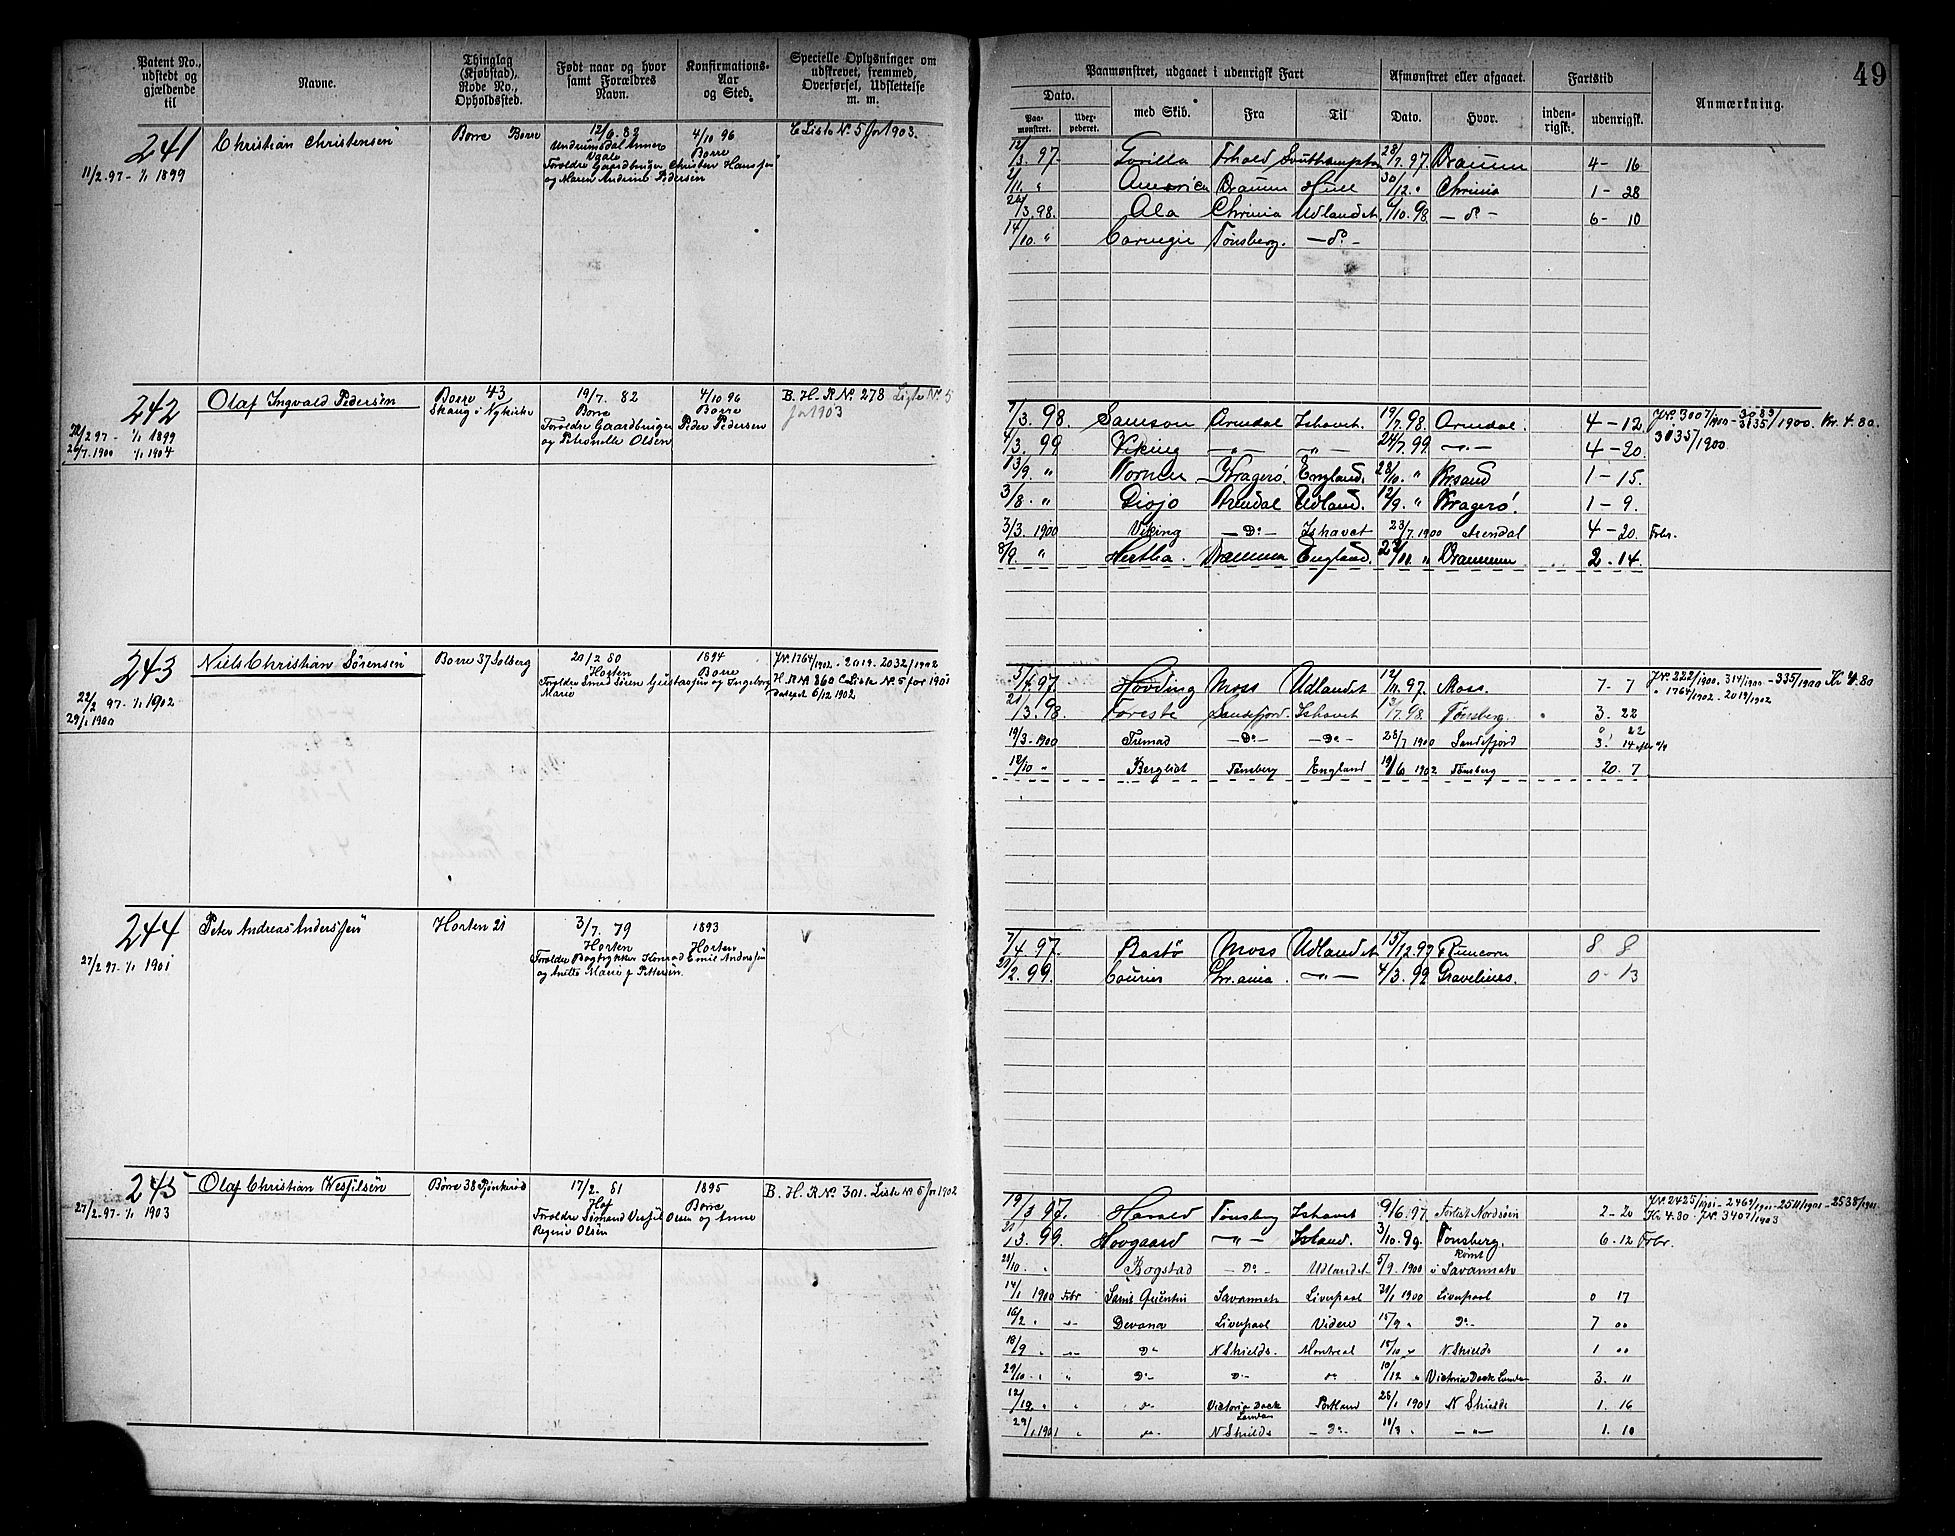 49
Patent No., udstedt og gjældende til
Navne.
Thinglag (Kjøbstad), Rode No., Opholdssted.
Født naar og hvor samt Forældres Navn.
Konfirmations-Aar og Sted.
Specielle Oplysninger om udskrevet, fremmed, Overførsel, Udslettelse m. m.
Paamønstret, udgaaet i udenrigsk Fart
Afmønstret eller afgaaet.
Fartstid
Anmærkning.
Dato.
Paamønstret.
med Skib.
Fra
Til
Dato.
Hvor.
indenrigsk.
udenrigsk.
241 Christian Christensen Borre Borre 12/9. 82 4/10 96 C Liste No. 5 for 1903.
Borre
Forældre Gaardbruger Christen Hansen
og Maren Andrine Pedersen
11/2. 97 - 1/1 1899
12/3. 97 Gorilla Southampton 28/7. 97 Drammen 4 - 16
Drammen Hull 30/12. " Chrinia 1 - 28
/3. 98. Ala Chrinia Udlandet /10. 98. - do - 6 - 10
14/10. " Carnegie Tønsberg. - do -
242 Olaf Ingvald Pedersen Borre 43 19/7. 82 4/10 96 B. H. R. No. 278 Liste No. 5
Skaug i Nykirke Borre Borre for 1903
Forældre Gaardbruger Peder Pedersen
og Petronelle Olsen
/2 97 - 1/1 1899
26/7. 1900 1/1 1904
7/3. 98. Samson Arendal Ishavet. 19/7. 98. Arendal. 4 - 12. J.No. 3007/1900 - 3083/3135/1900. Kr. 4. 80.
4/3. 99 Viking - " - - " - 24/7. 99 - " - 4 - 20. 3035/1900
13/9. " Kragerø. England. 28/10. " Krsand 1 - 15.
3/8. " Arendal Udland. 12/9. " Kragerø. 1 - 9.
3/3. 1900 Viking - Do - Ishavet 23/7. 1900 Arendal 4 - 20. Frbr.
8/9. " Hertha. Drammen England. /11. " Drammen 2 - 14.
243 Niels Christian Sörensen Borre 37 Solberg 20/2 80 1894 J.No. 1764/1902. - 2019. - 2032/1902
Horten Borre H. R. No 860 C Liste No. 5 for 1901
Forældre Smed Sören Gustavsen og Ingeborg
Marie
22/2 97 - 1/1 1902
29/1 1900
5/4. 97. Hövding Moss Udlandet 12/11. 97. Moss. 7 - 7 J.No. 222/1900. 314/1900 - 335/1900 Kr 4. 80
/3. 98. Foreste Sandefjord. Ishavet 13/7. 98. Tønsberg. 3. 22 " 1764/1902. - 2019/1902
19/3 - 1900 Fremad - Do - - Do - 28/7 1900 Sandefjord 3. 14
12/10 " Bergliot Tönsberg England 19/6 1902 Tönsberg 20. 7
244 Peter Andreas Anderssen Horten 21 3/7. 79 1893
Horten Horten
Forældre Bogtrykker Konrad Emil Anderssen
og Anette Marie f Pettersen.
27/2. 97. - 1/1 1901
7/4. 97. Bastø Moss Udlandet 15/12. 97 Runcorn 8 8
/2. 99. Courier Chr.ania - " - 4/3. 99 Gravelines. 0 - 13
245 Olaf Christian Wesselsen Borre 38 17/2. 81 1895 B. H. R. No. 301. Liste No 5 for 1902
Hof Borre
Forældre Simand Olsen og Anne
Regine Olsen
27/2. 97. - 1/1 1903
19/3 97. Harald Tønsberg Ishavet 9/6. 97. Forlist Nordsöen 2 - 20 J.No. 2425/1901 - 2469/1901 - 2511/1901 - 2538/1901
/3. 99. Hovgaard - " - Island. 3/10. 99. Tønsberg. 6. 12 Frbr. Kr 4. 80 J.No. 3407/1903
/10. Bogstad - Do - Udlandet 5/9. 1900 Rømt i Savannah
14/1 1900 Frbr Saint Quentin Savannah Liverpool 30/1 1900 Liverpool 0 17
16/2 " - " - Devona Liverpool Videre 15/9 " Do - 7 00
18/9 " - " - Do N Shields. Montreal 18/10 " N. Shields 1 00
29/10 " " Do - Do - do 10/12 " Victoria Dock London 3. 11
12/12. " " do Victoria Dock London Portland 28/1 1901 N Shields 1. 16
29/1 1901 " " N Shields - Do - 10/3 " - " - 1. 10